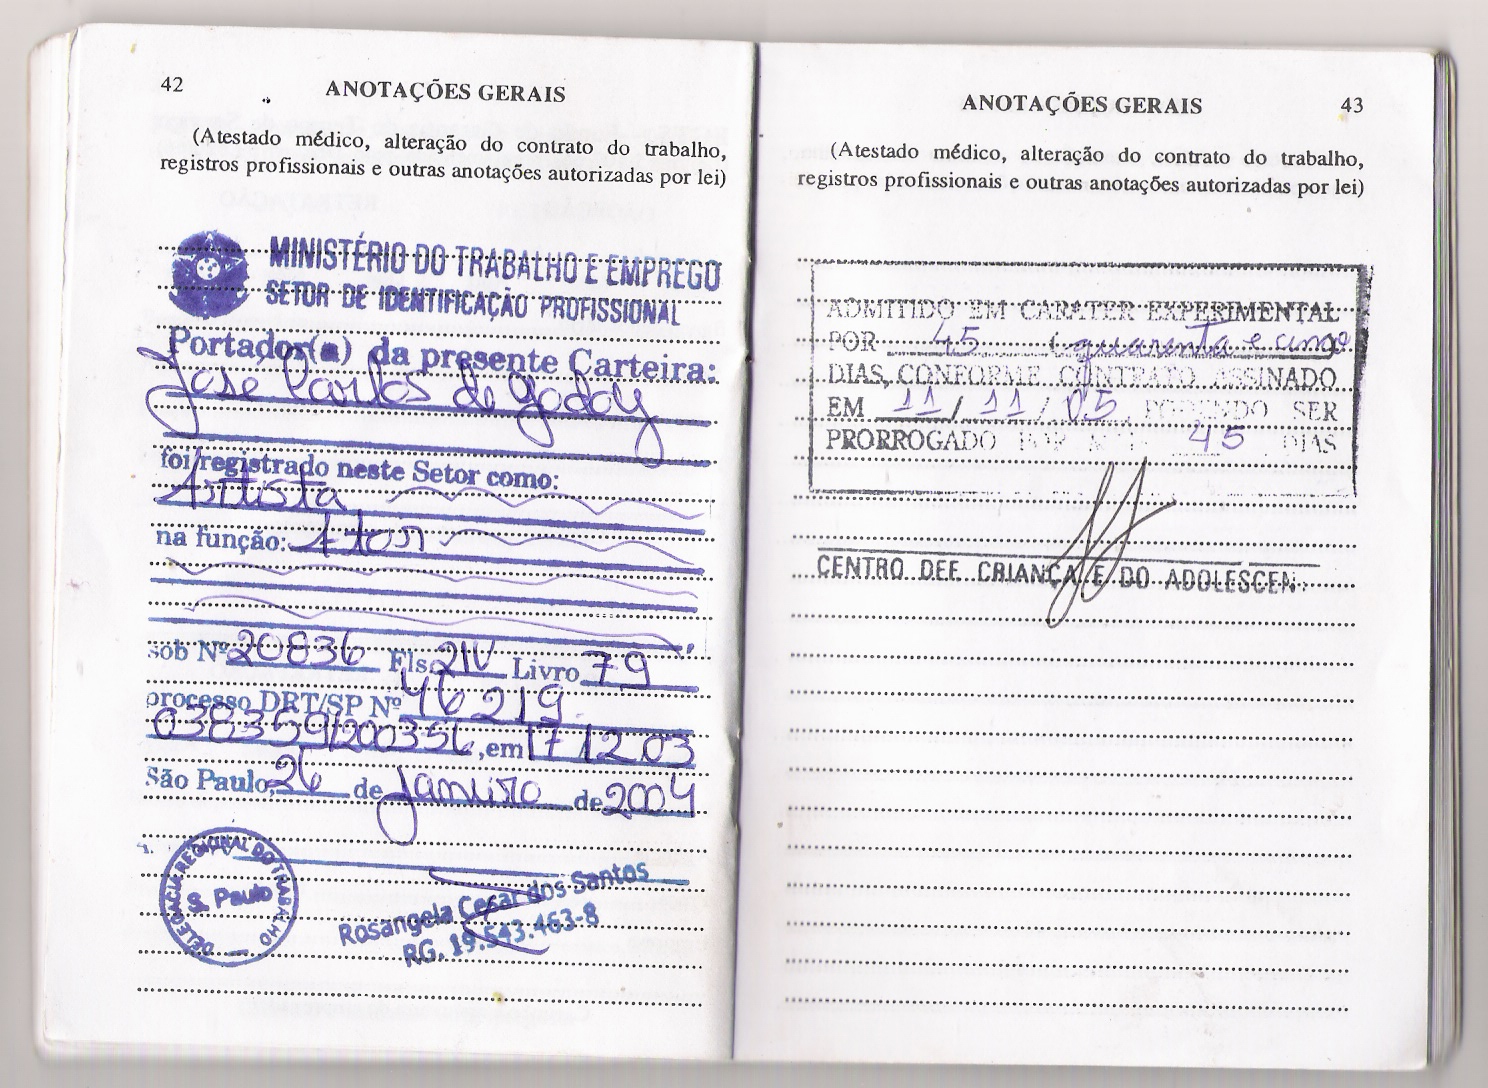 42
ANOTAÇÕES GERAIS
(Atestado médico, alteração do contrato do trabalho,
registros profissionais e outras anotações autorizadas por lei)
MINISTÉRIO DO TRABALHO E EMPREGO
SETOR DE IDENTIFICAÇÃO PROFISSIONAL
Portador(a) da presente Carteira:
Jose Carlos de Godoy
foi registrado neste Setor como:
Artista
na função: Ator
sob Nº 20836 Fls 21V Livro 79
processo DRT/SP Nº 46219
, em 17 12 03
São Paulo, 26 de Janeiro de 2004
DELEGACIA REGIONAL DO TRABALHO
S. Paulo
Rosangela Cesar dos Santos
RG. 19.543.463-8
ANOTAÇÕES GERAIS
43
(Atestado médico, alteração do contrato do trabalho,
registros profissionais e outras anotações autorizadas por lei)
ADMITIDO EM CARATER EXPERIMENTAL
POR 45 (quarenta e cinco
DIAS, CONFORME CONTRATO ASSINADO
EM 11 / 11 / 05, PODENDO SER
PRORROGADO POR MAIS 45 DIAS
CENTRO DEF. CRIANÇA E DO ADOLESCEN.